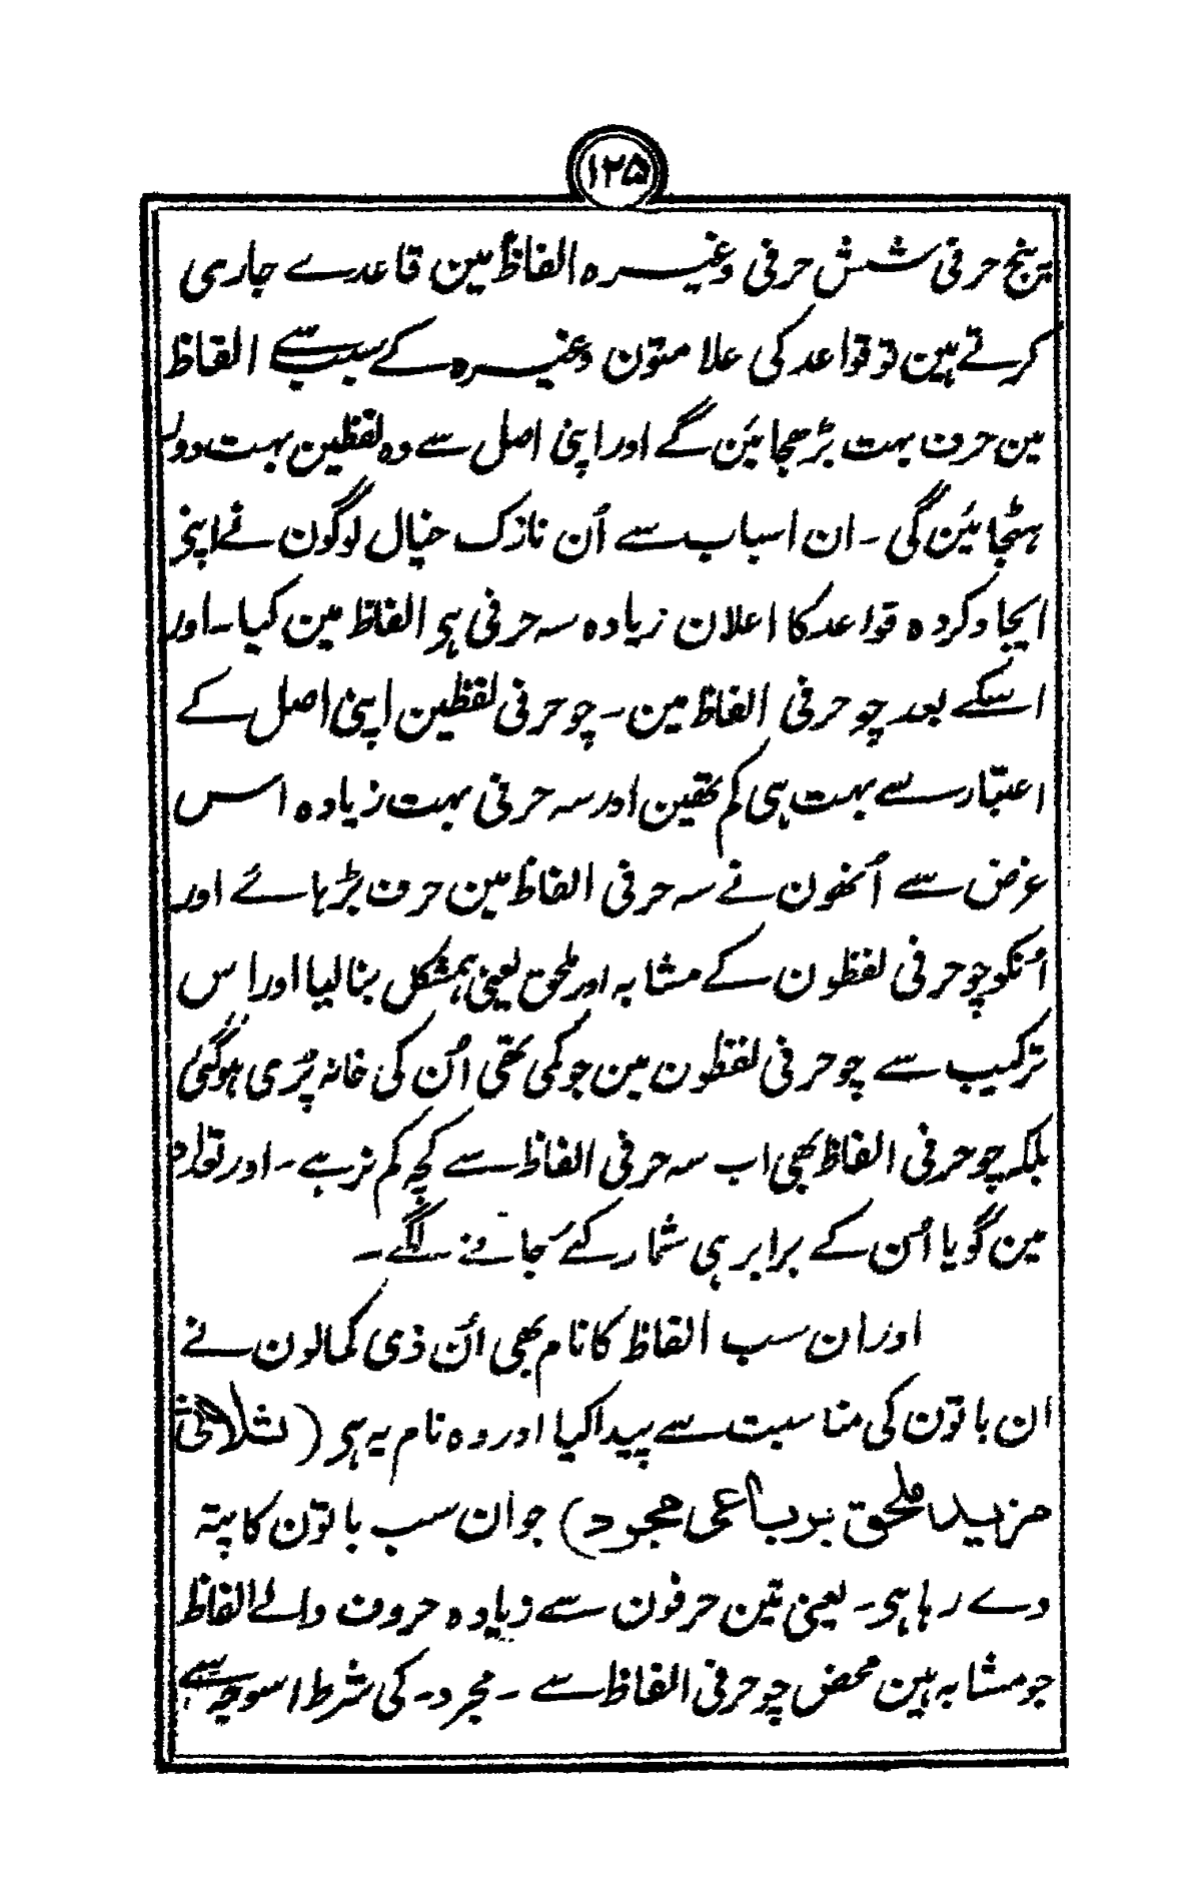 ۱۲۵
پنج حرفی شش حرفی وغیرہ الفاظ مین قاعدے جاری
کرتے ہین تو قواعد کی علامتون وغیرہ کے سبب سے الفاظ
مین حرف بہت بڑھجائین گے اور اپنی اصل سے وہ لفظین بہت دور
ہٹجائین گی ۔ ان اسباب سے اُن نازک خیال لوگون نے اپنے
ایجاد کردہ قواعد کا اعلان زیادہ سہ حرفی ہی الفاظ مین کیا ۔ اور
اسکے بعد چو حرفی الفاظ مین ۔ چو حرفی لفظین اپنی اصل کے
اعتبار سے بہت ہی کم تھین اور سہ حرفی بہت زیادہ اس
غرض سے اُنھون نے سہ حرفی الفاظ مین حرف بڑہائے اور
اُنکو چو حرفی لفظون کے مشابہ اور ملحق یعنی ہمشکل بنا لیا اور اس
ترکیب سے چو حرفی لفظون مین جو کمی تھی اُن کی خانہ پُری ہو گئی
بلکہ چو حرفی الفاظ بھی اب سہ حرفی الفاظ سے کچھ کم نرہے ۔ اور تعداد
مین گویا اُن کے برابر ہی شمار کئے جانے لگے ۔
اور ان سب الفاظ کا نام بھی اُن ذی کمالون نے
ان باتون کی مناسبت سے پیدا کیا اور وہ نام یہ ہی (ثلاثی
مزید ملحق برباعی مجرد) جو ان سب باتون کا پتہ
دے رہا ہی ۔ یعنی تین حرفون سے زیادہ حروف والے الفاظ
جو مشابہ ہین محض چو حرفی الفاظ سے ۔ مجرد ۔ کی شرط اسوجہ سے